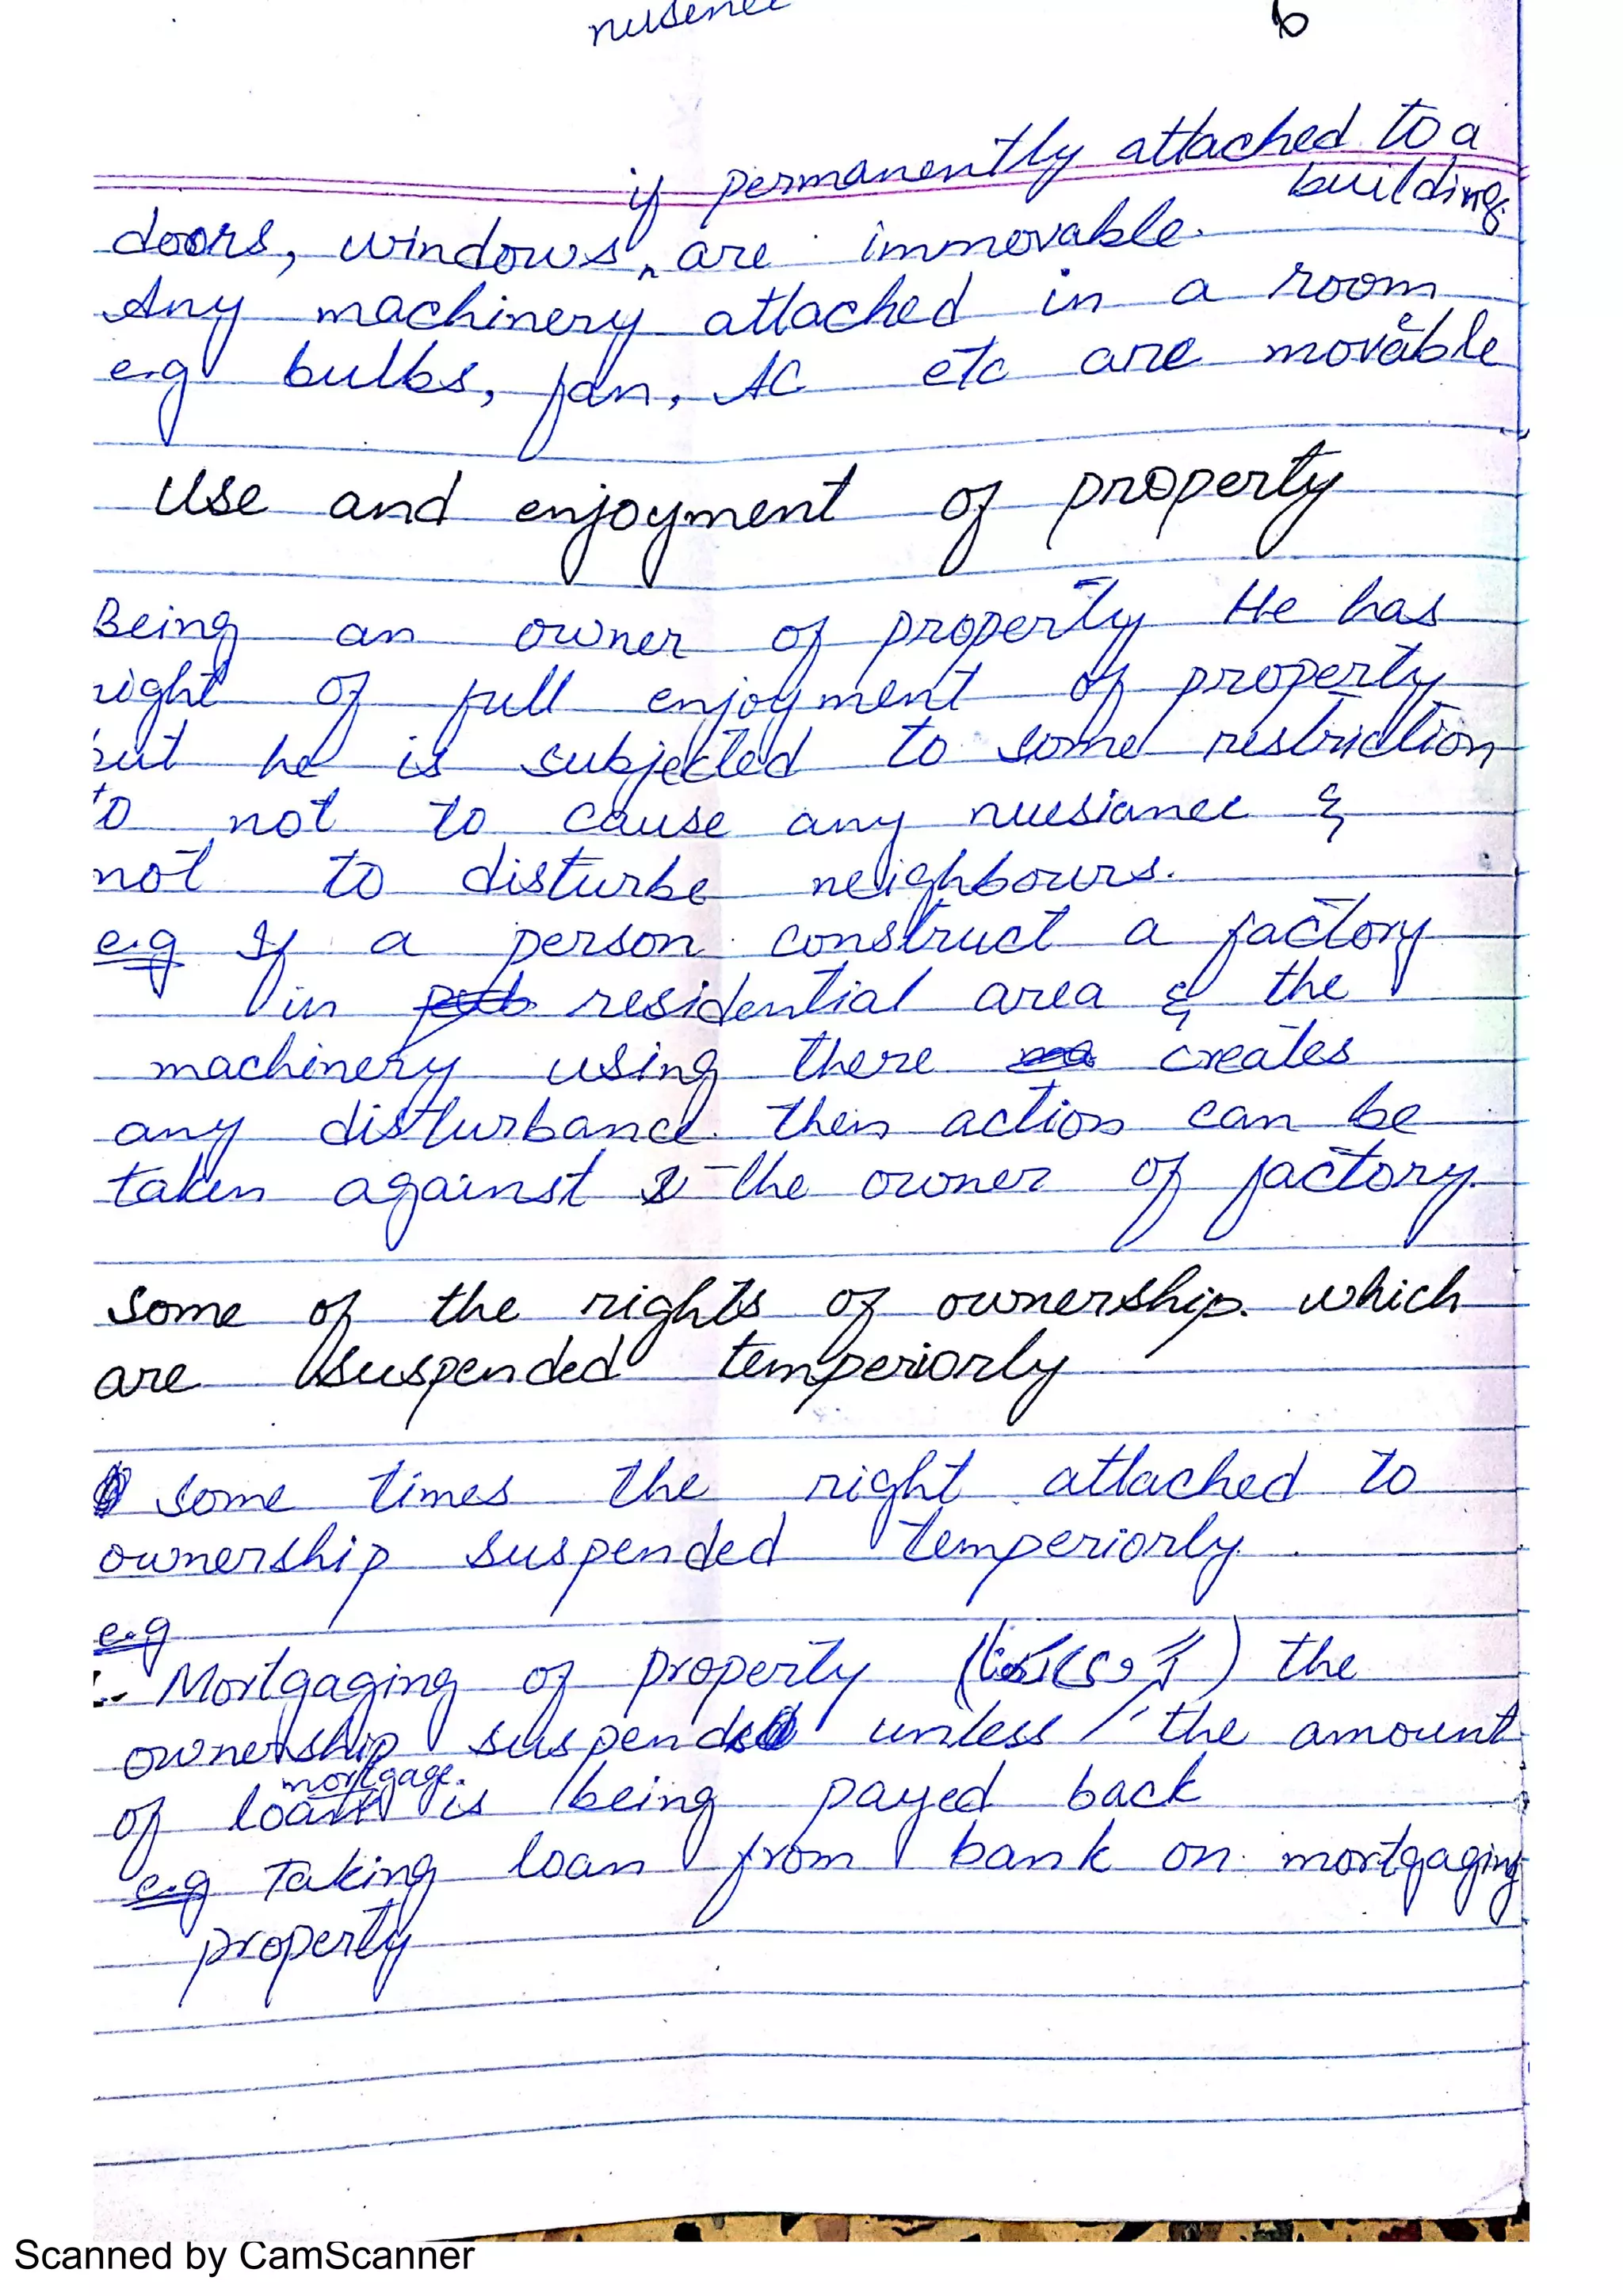 nusence
6
if permanently attached to a
building.
doors, windows ^ are immovable.
Any machinery attached in a room
e.g bulbs, fan, AC etc are moveable
Use and enjoyment of property
Being an owner of property He has
right of full enjoyment of property
but he is subjected to some restriction
to not to cause any nuesiance &
not to disturbe neighbours.
e.g If a person construct a factory
in residential area & the
machinery using there creates
any disturbance then action can be
taken against the owner of factory.
Some of the rights of ownership which
are suspended temperiorly
some times the right attached to
ownership suspended temperiorly
e.g
1. Mortgaging of property ( ) the
ownership suspends unless the amount
mortgage.
of loan is being payed back
e.g Taking loan from bank on mortgaging
property
Scanned by CamScanner